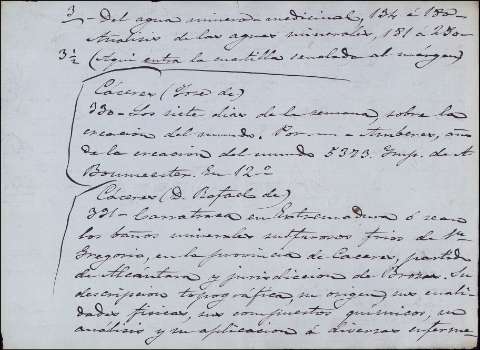 3 - Del agua minero-medicinal, 134 á 180-
Análisis de las aguas minerales, 181 á 250-
3½ (Aquí entra la cuartilla señalada al márgen)
Cáceres (José de)
330- Los siete dias de la semana, sobre la
creacion del mundo. Por mi - Amberes, año
de la creacion del mundo 5373. Imp. de A
Boumeester. En 12º
Cáceres (D. Rafael de)
331- Carratraca en Extremadura ó sean
los baños minerales sulfurosos frios de Sn
Gregorio, en la provincia de Caceres, partido
de Alcántara y jurisdiccion de Brozas. Su
descripcion topográfica, su origen, sus cuali-
dades fisicas, sus compuestos químicos, su
análisis y su aplicacion á diversas enferme